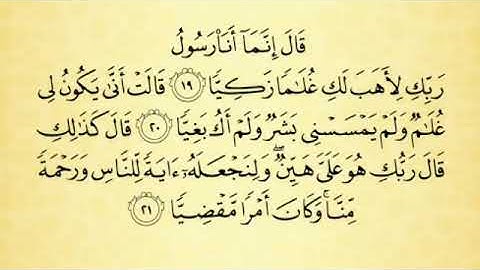 قَالَ إِنَّمَآ أَنَا۠ رَسُولُ
رَبِّكِ لِأَهَبَ لَكِ غُلَـٰمًا زَكِيًّا ١٩ قَالَتْ أَنَّىٰ يَكُونُ لِى
غُلَـٰمٌ وَلَمْ يَمْسَسْنِى بَشَرٌ وَلَمْ أَكُ بَغِيًّا ٢٠ قَالَ كَذَٰلِكِ
قَالَ رَبُّكِ هُوَ عَلَىَّ هَيِّنٌ ۖ وَلِنَجْعَلَهُۥٓ ءَايَةً لِّلنَّاسِ وَرَحْمَةً
مِّنَّا ۚ وَكَانَ أَمْرًا مَّقْضِيًّا ٢١